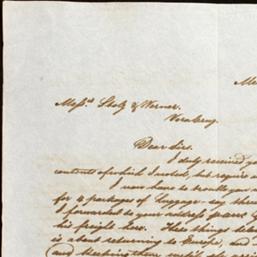 Me
Messrs Stolz & Werner.
Vera Cruz.
Dear Sirs.
I duly received yo
contents of which I noted, but require no
I now have to trouble you
for 4 packages of Luggage - say three
I forwarded to your address
his freight here. These things belong
is about returning to Europe, and
and